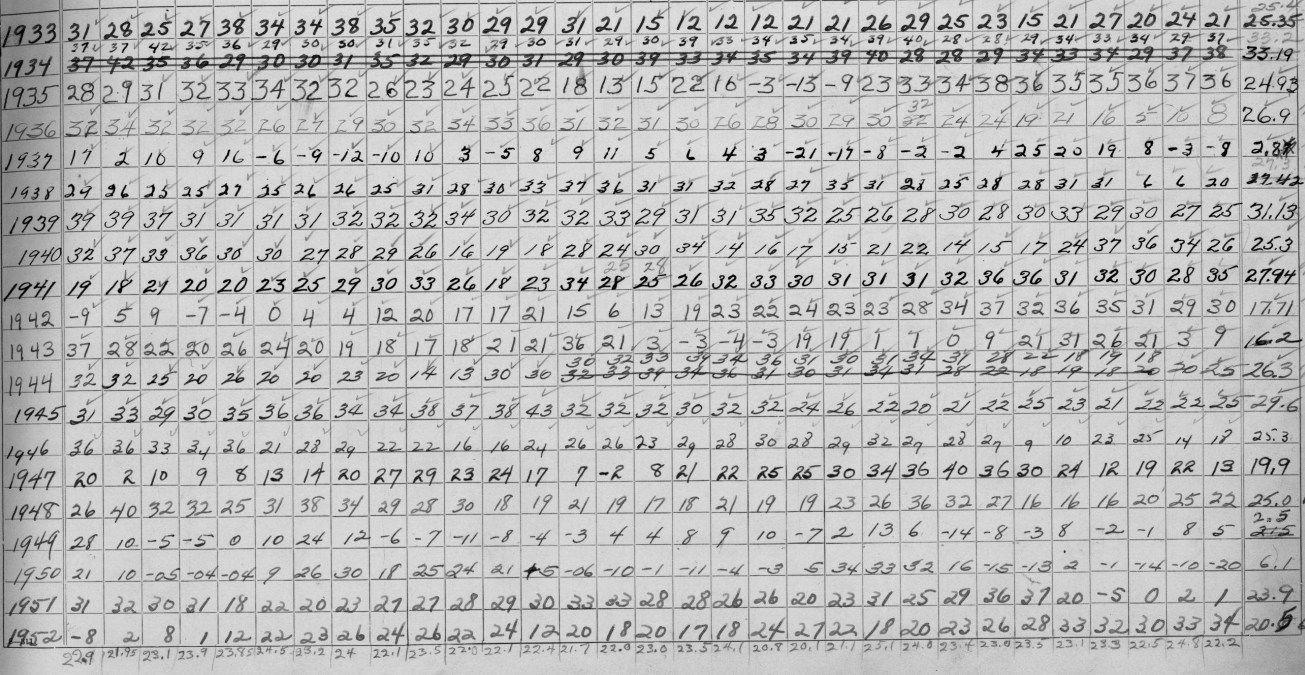 1933 31 28 25 27 38 34 34 38 35 32 30 29 29 31 21 15 12 12 12 21 21 26 29 25 23 15 21 27 20 24 21 25.35
37 37 42 35 36 29 30 30 31 35 32 29 30 31 29 30 39 33 34 35 34 39 40 28 28 29 34 33 34 29 37
1934 37 42 35 36 29 30 30 31 35 32 29 30 31 29 30 39 33 34 35 34 39 40 28 28 29 34 33 34 29 37 38 33.19
1935 28 29 31 32 33 34 32 32 26 23 24 25 22 18 13 15 22 16 -3 -13 -9 23 33 34 38 36 35 35 36 37 36 24.93
32
1936 32 34 32 32 32 26 27 29 30 32 34 33 36 31 32 31 30 26 28 30 29 30 32 24 24 19 21 16 5 10 8 26.9
1937 17 2 10 9 16 -6 -9 -12 -10 10 3 -5 8 9 11 5 6 4 3 -21 -17 -8 -2 -2 4 25 20 19 8 -3 -8
1938 29 26 23 25 27 25 26 26 25 31 28 30 33 37 36 31 31 32 28 27 35 31 28 25 28 28 31 31 6 6 20
1939 39 39 37 31 31 31 31 32 32 32 34 30 32 32 33 29 31 31 35 32 25 26 28 30 28 30 33 29 30 27 25 31.13
1940 32 37 33 36 30 30 27 28 29 26 16 19 18 28 24 30 34 14 16 17 15 21 22 14 15 17 24 37 36 34 26 25.3
25 28
1941 19 18 27 20 20 23 25 29 30 33 26 18 23 34 28 25 26 32 33 30 31 31 31 32 36 36 31 32 30 28 35 27.94
1942 -9 5 9 -7 -4 0 4 4 12 20 17 17 21 15 6 13 19 23 22 24 23 23 28 34 37 32 36 35 31 29 30 17.71
1943 37 28 22 20 26 24 20 19 18 17 18 21 21 36 21 3 -3 -4 -3 19 19 1 7 0 9 21 31 26 21 3 9 16.2
30 32 33 39 34 36 31 30 31 34 31 28 22 18 19 18
1944 32 32 25 20 26 20 20 23 20 14 13 30 30 32 33 39 34 36 31 30 31 34 31 28 22 18 19 18 20 20 25 26.3
1945 31 33 29 30 35 36 36 34 34 38 37 38 43 32 32 32 30 32 32 24 26 22 20 21 22 25 23 21 22 22 25 29.6
1946 36 36 33 24 36 21 28 29 22 22 16 16 24 26 26 23 29 28 30 28 29 32 27 28 27 9 10 23 25 14 18 25.3
1947 20 2 10 9 8 13 14 20 27 29 23 24 17 7 -2 8 21 22 25 25 30 34 36 40 36 30 24 12 19 22 13 19.9
1948 26 40 32 32 25 31 38 34 29 28 30 18 19 21 19 17 18 21 19 19 23 26 36 32 27 16 16 16 20 25 22 25.0
2.5
1949 28 10 -5 -5 0 10 24 12 -6 -7 -11 -8 -4 -3 4 4 8 9 10 -7 2 13 6 -14 -8 -3 8 -2 -1 8 5
1950 21 10 -05 -04 -04 9 26 30 18 25 24 21 +5 -06 -10 -1 -11 -4 -3 5 34 33 32 16 -15 -13 2 -1 -14 -10 -20 6.1
1951 31 32 30 31 18 22 20 23 27 27 28 29 30 33 23 28 28 26 26 20 23 31 25 29 36 37 20 -5 0 2 1 23.9
1952 -8 2 8 1 12 22 23 26 24 26 22 24 12 20 18 20 17 18 24 27 22 18 20 23 26 28 33 32 30 33 34
22.9 21.95 23.1 23.9 23.85 24.5 23.2 24 22.1 23.5 22.0 22.1 22.4 21.7 22.0 23.0 23.5 24.1 20.8 20.1 21.1 25.1 24.0 23.4 23.0 23.5 23.1 23.3 22.5 24.8 22.2